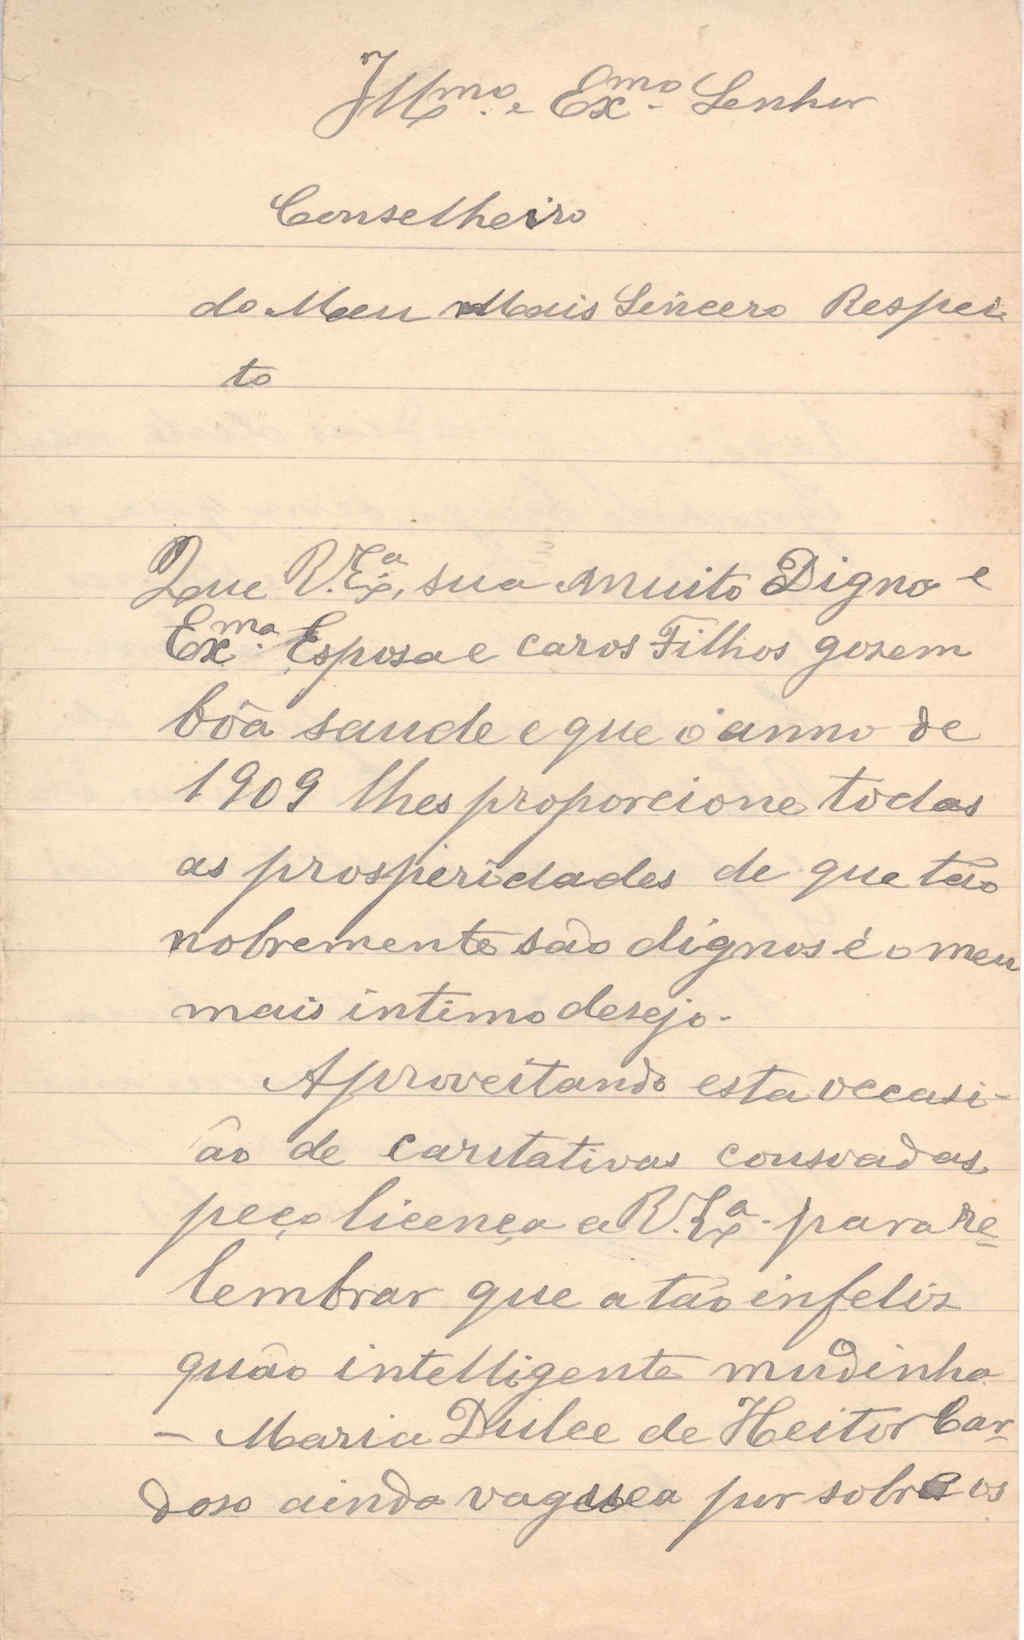 Illmo. e Exmo. Senhor
Conselheiro
do Meu Mais Sincero Respei-
to
Que V. Exa., sua muito Digna e
Exma. Esposa e caros Filhos gozem
bôa saude e que o anno de
1909 lhes proporcione todas
as prosperidades de que tão
nobremente são dignos é o meu
mais intimo desejo.
Aproveitando esta occasi-
ão de caritativas consoadas
peço licença a V. Exa. para re-
lembrar que a tão infeliz
quão intelligente mudinha
- Maria Dulce de Heitor Car-
doso ainda vaguea por sobre os